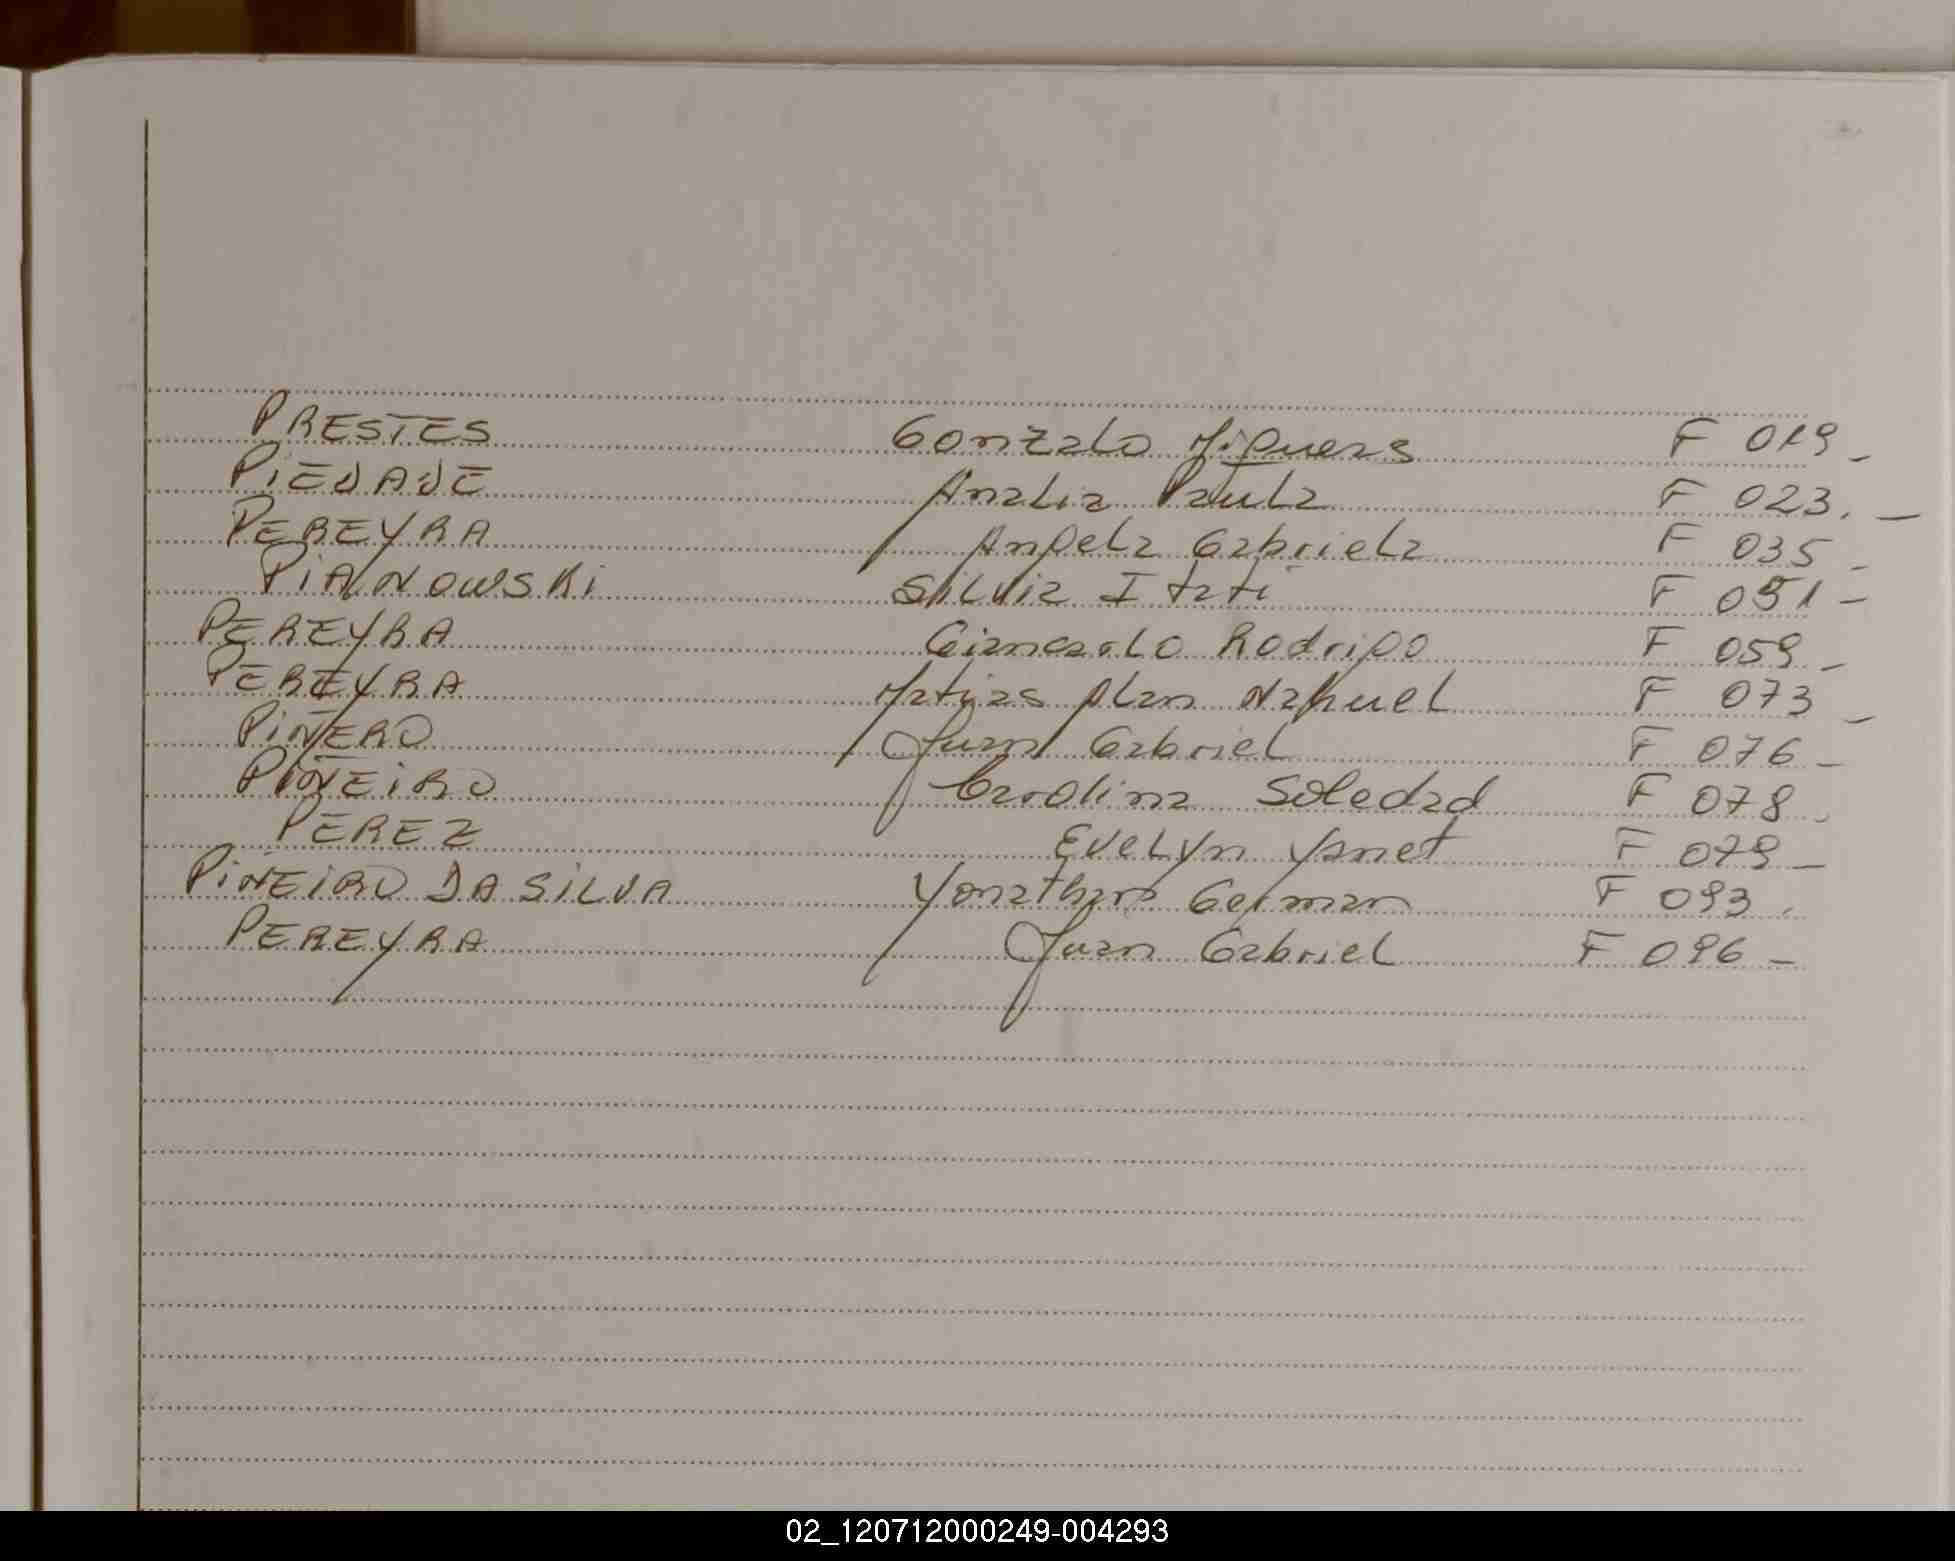 PRESTES Gonzalo Miguens F 019-
PiEDADE Analia Paula F 023.-
PEREYRA Angela Gabriela F 035-
PiANOWSKi Silvia Itati F 051-
PEREYRA Giancarlo Rodrigo F 059-
PEREYRA Matias Alan Nahuel F 073-
PiÑERO Juan Gabriel F 076-
PIÑEiRO Carolina Soledad F 078.
PEREZ Evelyn Yanet F 079-
PiÑEIRO DA SiLVA Yonathan German F 093.
PEREYRA Juan Gabriel F 096-
02_120712000249-004293